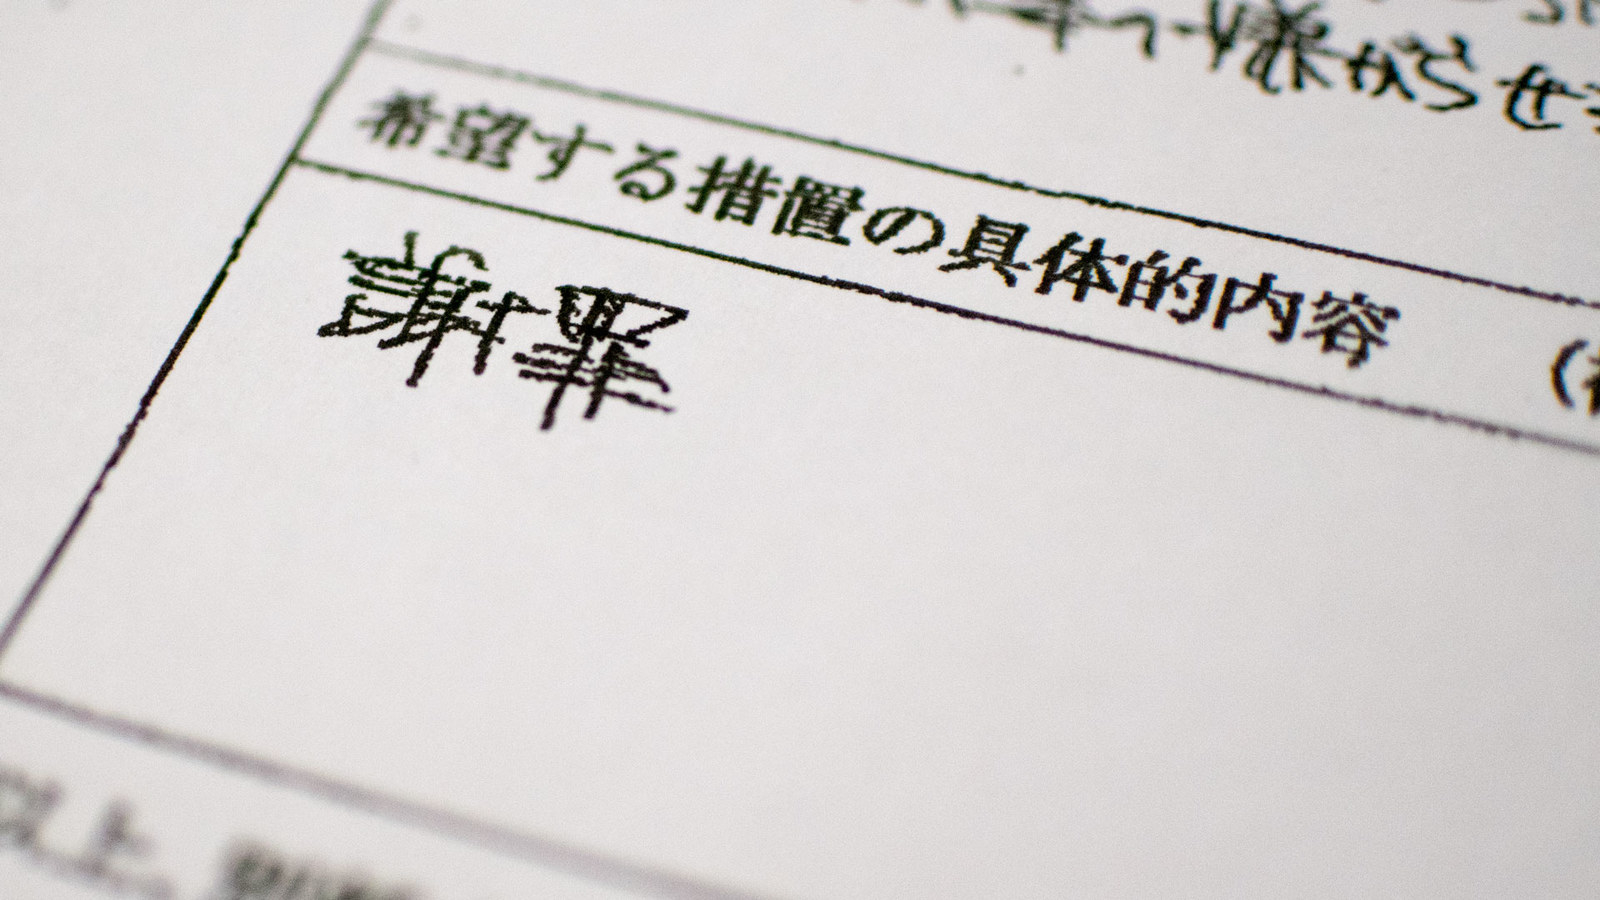 様からせ
希望する措置の具体的内容 (
謝罪
以上、